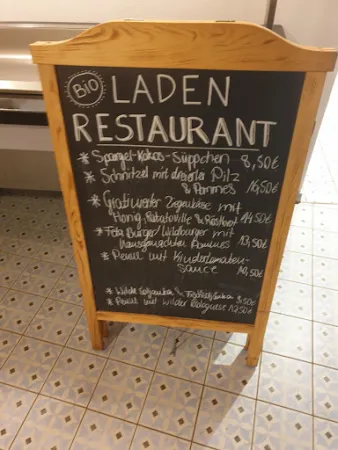 Bio LADEN
RESTAURANT
* Spargel-Kokos-Süppchen 8,50€
* Schnitzel mit Pilz
& Pommes 16,50€
Gratinierter Ziegenkäse mit
Honig, Ratatouille & Röstbrot 14,50€
* Feta Burger/Wildburger mit
hausgemachten Pommes
* Penne mit Kirschtomaten-
sauce
* Wilde &
* Penne mit wilder Bolognese